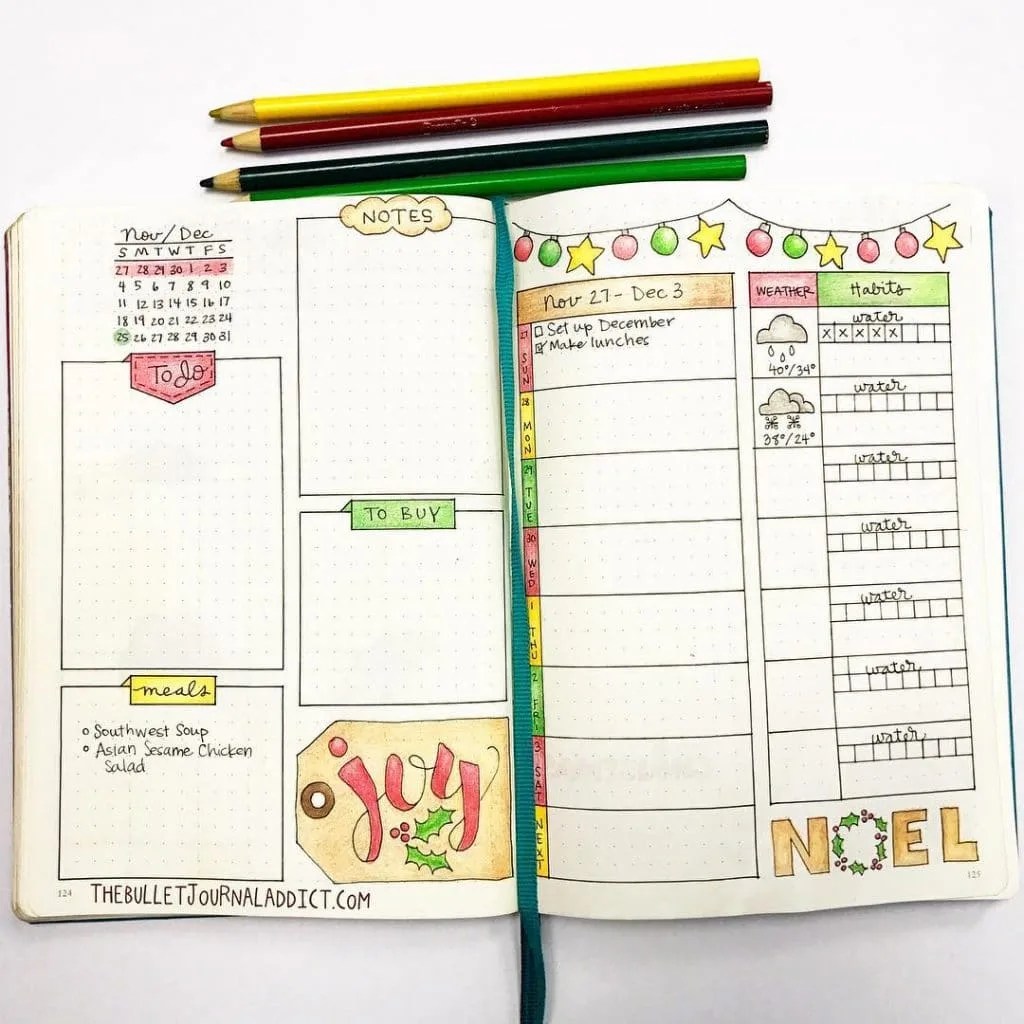 Nov/Dec
S M T W T F S
27 28 29 30 1 2 3
4 5 6 7 8 9 10
11 12 13 14 15 16 17
18 19 20 21 22 23 24
25 26 27 28 29 30 31
To do
meals
Southwest Soup
Asian Sesame Chicken
Salad
124
THEBULLETJOURNALADDICT.COM
NOTES
TO BUY
joy
Nov 27 - Dec 3
27 SUN
Set up December
Make lunches
28 MON
29 TUE
30 WED
1 THU
2 FRI
3 SAT
NEXT
WEATHER
Habits
40°/34°
water
X X X X X
38°/24°
water
water
water
water
water
water
NOEL
125